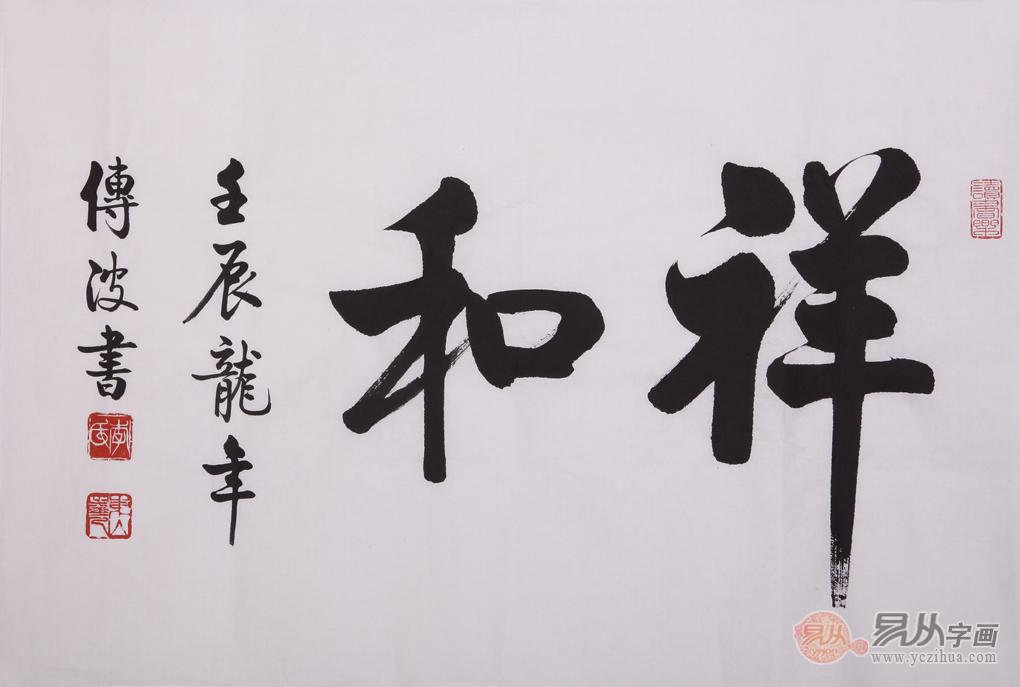 祥和
壬辰龍年
傳波書
讀書樂
李氏
易从字画
www.yczihua.com